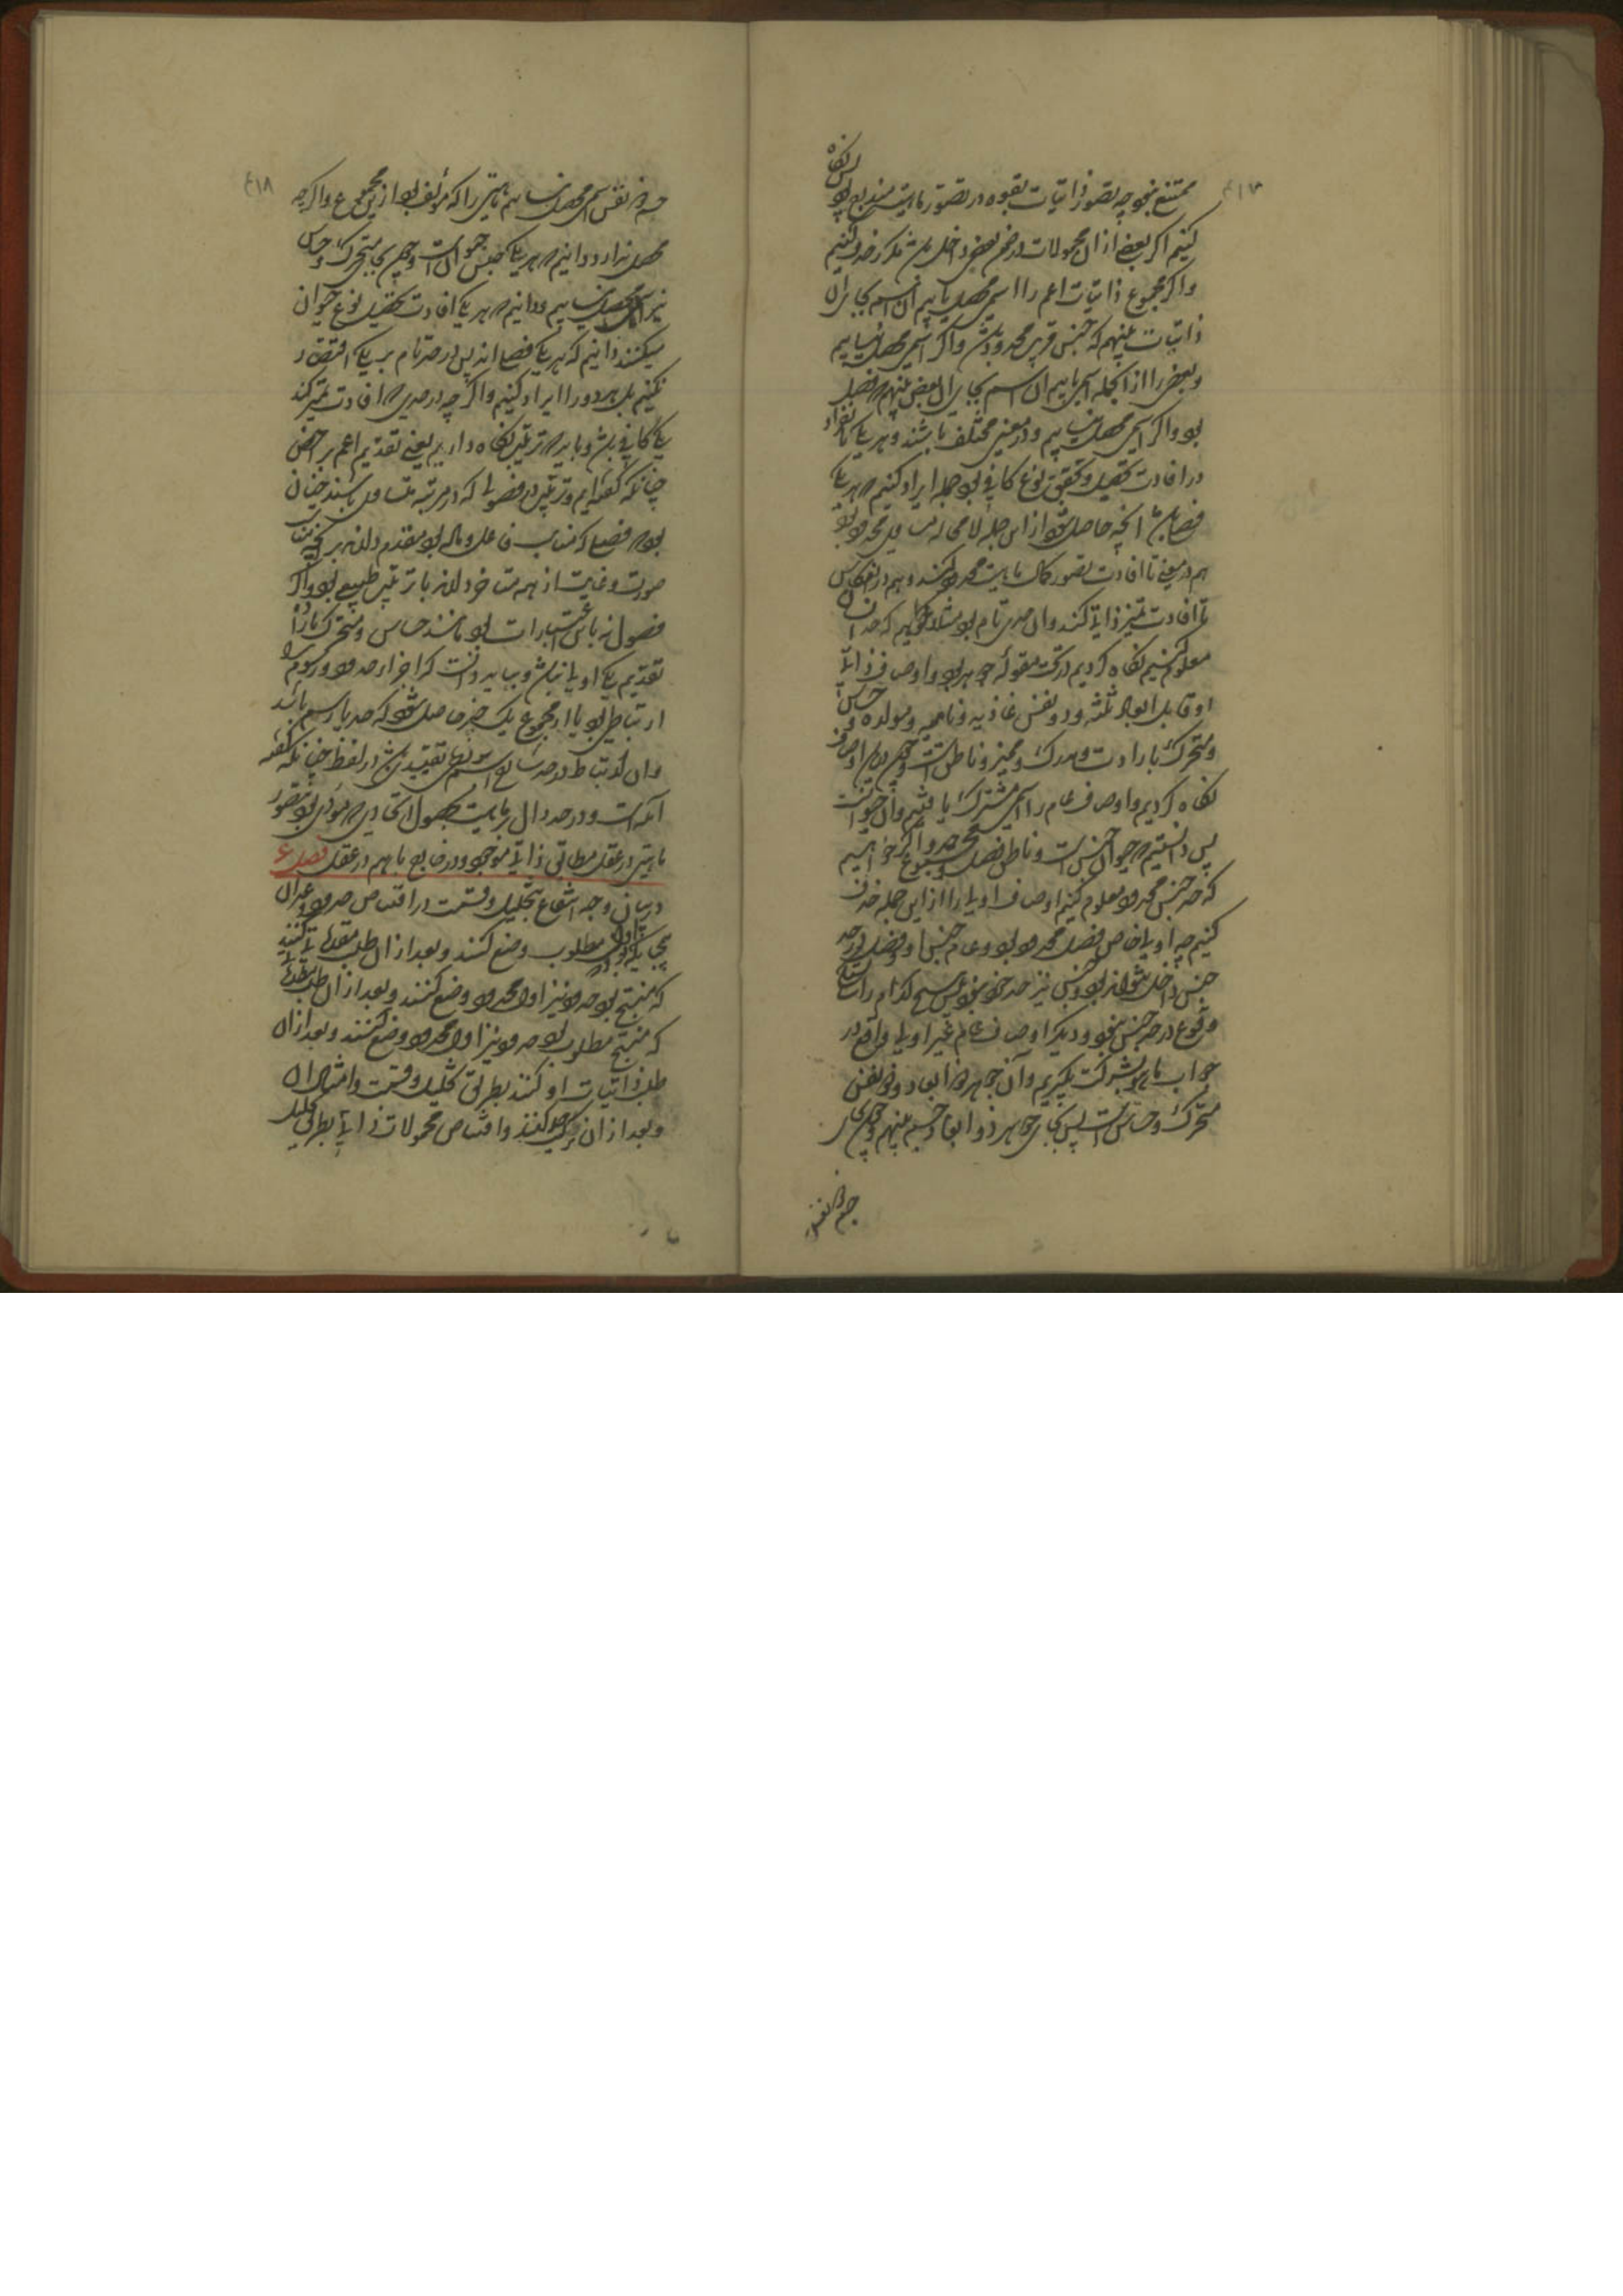 ممتنع بنحو چه تصور ذاتیات بقوه در تصور ماهیت مندرج بود پس نگاه
کنیم اگر بعضی از آن محمولات در ضمن بعضی داخل باشد مکرر حذف کنیم
واگر مجموع ذاتیات اعم را اسمی محصل یابیم آن اسم بجای آن
ذاتیات بنهیم که جنس قریب محدود باشد واگر اسمی محصل نیابیم
وبعضی را از آنجمله اسمی یابیم آن اسم بجای آن بعض بنهیم
بود واگر اسمی محصل نیابیم ودر معنی مختلف باشند وهر یکی بانفراد
در افادت تحصیل وتحقق نوع کافی بود جمله ایراد کنیم هر یکی
فصلی باشد آنچه حاصل شود از این جمله لا محاله مساوی محدود بود
هم در معنی تا افادت تصور کمال ماهیت محدود کند وهم در انعکاس
تا افادت تمیز ذاتی کند وآن حدی تام بود مثلا خواهیم که حد انسان
معلوم کنیم نگاه کردیم در تحت مقوله جوهر بود واوصاف ذاتی
او قابل ابعاد ثلثه وذو نفس غاذیه ونامیه ومولده وحساس
ومتحرک بارادت ومدرک وممیز وناطق است وچون در این اوصاف
نگاه کردیم واوصاف عام را اسمی مشترک یافتیم وآن حیوانست
پس دانستیم حیوان جنس است وناطق فصل ومجموع حد واگر خواهیم
که حد جنس محدود معلوم کنیم اوصاف اولی را از این جمله حذف
کنیم چه اولی خاص فصل محدود بود وعام جنس او وفصل در حد
جنس داخل نتواند بود وجنس نیز حد خود نبود پس هیچ کدام را
وقوع در حد جنس نبود ودیگر اوصاف عام غیر اولی واقع در
جواب ما هو بشرکت بگیریم وآن جوهر ذو ابعاد وذو نفس
متحرک وحساس است پس بجای جوهر ذو ابعاد جسم بنهیم وچون بجای
جسم ذو نفس
۴۱۸
جسم ذو نفس اسمی محصل نیابیم ماهیتی را که مؤلف بود از این مجموع واگرچه
محصل ندارد دانیم هر یکی جنس حیوان است وچون بجای متحرک وحساس
نیز اسمی محصل نیابیم ودانیم هر یکی افادت تحصیل نوع حیوان
میکنند دانیم که هر یکی فصلی اند پس در حد تام بر یکی اقتصار
نکنیم بل هر دو را ایراد کنیم واگرچه در حدی افادت تمیز کند
یکی کافی باشد وباید ترتیب نگاه داریم یعنی تقدیم اعم بر اخص
چنانکه گفته ایم وترتیب در فصولی که در مرتبه متساوی باشند چنان
بود فصلی که مناسب فاعل وماده بود مقدم دارند بر آنچه مناسب
صورت وغایت از جهت خود دارند با ترتیب طبیعی بود واگر
فصول نه باین اعتبارات بود مانند حساس ومتحرک بارادت
تقدیم یکی اولی نباشد وبباید دانست که اجزاء حدود ورسوم را
ارتباطی بود تا از مجموع یک چیز حاصل شود که حد یا رسم باشد
وآن ارتباط در حد شارح اسم تقییدی باشد در لفظ چنانکه گفته
آمد است ودر حد دال بر ماهیت بحصول اتحادی مؤدی بود بتصور
ماهیتی در عقل مطابق ذاتی موجود در خارج یا هم در عقل فصل ۶
در بیان وجه انتفاع بتحلیل وقسمت در اقتناص حدود وغیر آن
همچنانکه در براهین اول مطلوب وضع کنند وبعد از آن طلب مقدماتی کنند
که منتج بود حدود نیز اول محدود وضع کنند وبعد از آن طلب مقدماتی
که منتج مطلوب بود حدود نیز اول محدود وضع کنند وبعد از آن
طلب ذاتیات او کنند بطریق تحلیل وقسمت وامثال آن
وبعد از آن ترکیب حد کنند واقتناص محمولات ذاتی بطریق تحلیل